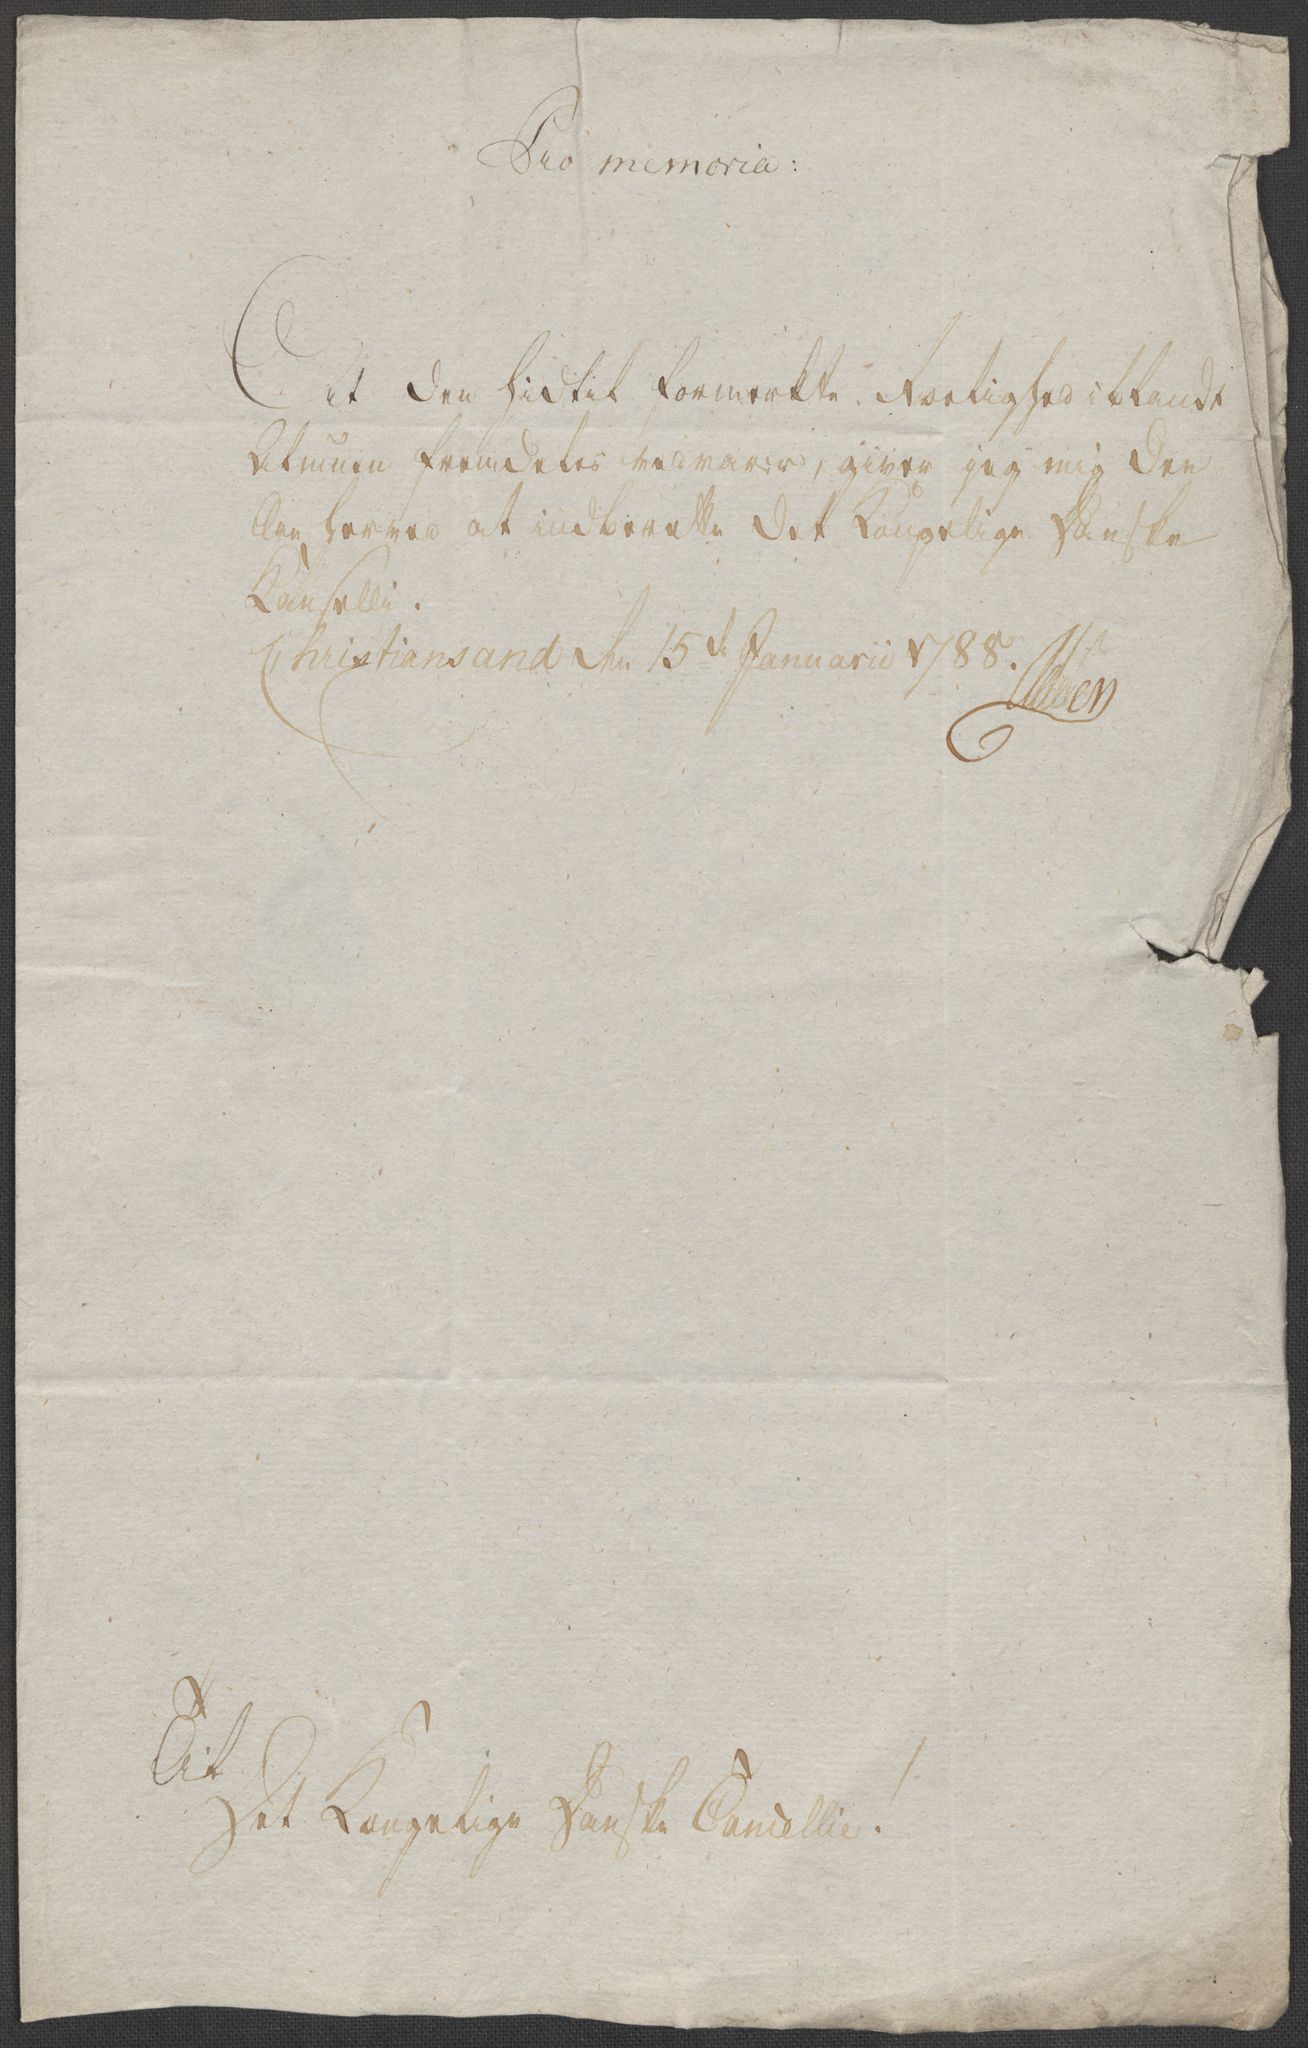 Pro memoria:
At den hidtil formerkte Roelighed iblandt
Almuen fremdeles vedvarer, giver jeg mig den
Ære herved at indberette det Kongelige Danske
Canselli.
Christiansand den 15de Januarii 1788.
Til
Det Kongelige Danske Cancellie!